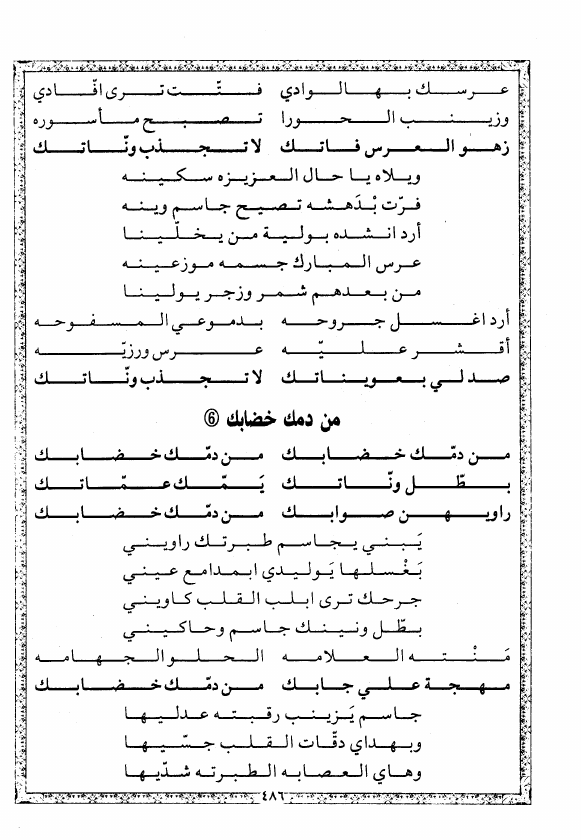 عرسك بهالوادي فتّت ترى افّادي
وزينب الحورا تصبح مأسوره
زهو العرس فاتك لا تجذب ونّاتك
ويلاه يا حال العزيزه سكينه
فرّت بْدَهشه تصيح جاسم وينه
أرد انشده بولية من يخلّينا
عرس المبارك جسمه موزعينه
من بعدهم شمر وزجر يولينا
أرد اغسل جروحه بدموعي المسفوحه
أقشر عليّه عرس ورزيّه
صد لي بعويناتك لا تجذب ونّاتك
من دمك خضابك ⑥
من دمّك خضابك من دمّك خضابك
بطّل ونّاتك يَمّك عمّاتك
راويهن صوابك من دمّك خضابك
يَبني يجاسم طبرتك راويني
بَغْسلها يَوليدي ابمدامع عيني
جرحك ترى ابلب القلب كاويني
بطّل ونينك جاسم وحاكيني
مَنْته العلامه الحلو الجهامه
مهجة علي جابك من دمّك خضابك
جاسم يَزينب رقبته عدليها
وبهداي دقّات القلب جسّيها
وهاي العصابه الطبرته شدّيها
٤٨٦